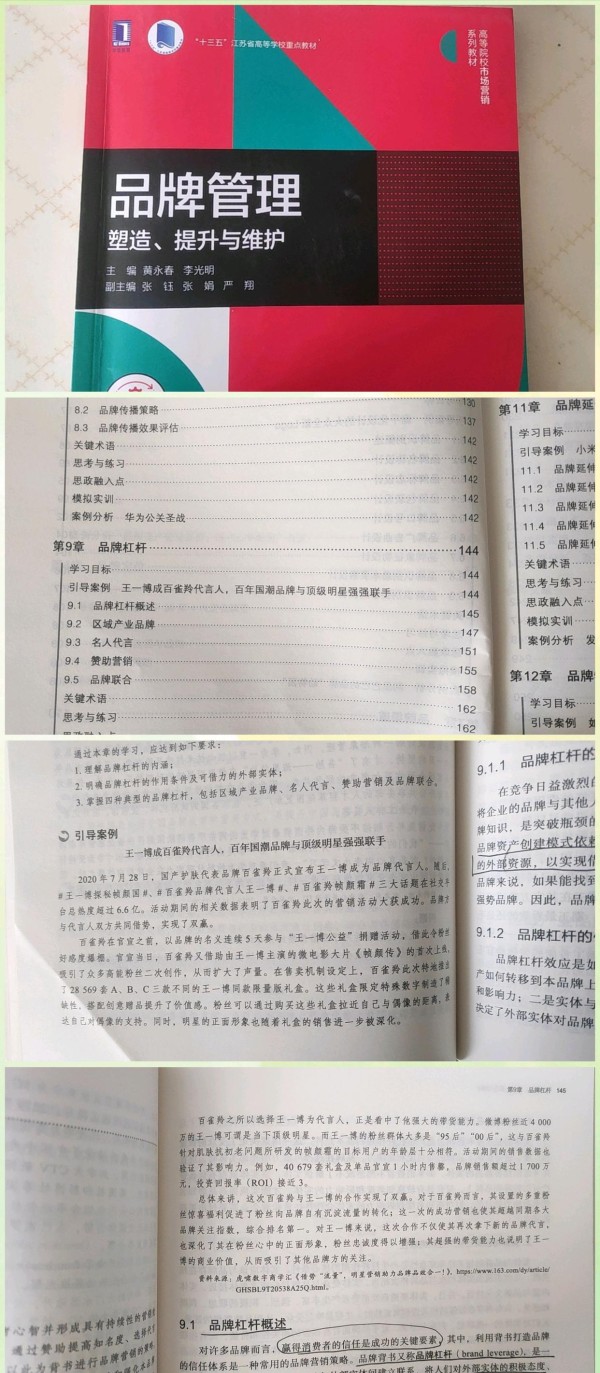 "十三五"江苏省高等学校重点教材
高等院校市场营销
系列教材
品牌管理
塑造、提升与维护
主 编 黄永春 李光明
副主编 张 钰 张 娟 严 翔
8.2 品牌传播策略 130
8.3 品牌传播效果评估 137
关键术语 142
思考与练习 142
思政融入点 142
模拟实训 142
案例分析 华为公关圣战 142
第9章 品牌杠杆 144
学习目标 144
引导案例 王一博成百雀羚代言人，百年国潮品牌与顶级明星强强联手 144
9.1 品牌杠杆概述 145
9.2 区域产业品牌 147
9.3 名人代言 151
9.4 赞助营销 155
9.5 品牌联合 158
关键术语 162
思考与练习 162
第11章 品牌延
学习目标
引导案例 小米
11.1 品牌延伸
11.2 品牌延伸
11.3 品牌延伸
11.4 品牌延伸
11.5 品牌延伸
关键术语
思考与练习
思政融入点
模拟实训
案例分析 发
第12章 品牌
学习目标
引导案例
通过本章的学习，应达到如下要求：
1. 理解品牌杠杆的内涵；
2. 明确品牌杠杆的作用条件及可借力的外部实体；
3. 掌握四种典型的品牌杠杆，包括区域产业品牌、名人代言、赞助营销及品牌联合。
引导案例
王一博成百雀羚代言人，百年国潮品牌与顶级明星强强联手
2020年7月28日，国产护肤代表品牌百雀羚正式宣布王一博成为品牌代言人。随后，
#王一博探秘帧颜国#、#百雀羚品牌代言人王一博#、#百雀羚帧颜霜#三大话题在社交平
台总热度超过6.6亿。活动期间的相关数据表明了百雀羚此次的营销活动大获成功。品牌方
与代言人双方共同借势，实现了双赢。
百雀羚在官宣之前，以品牌的名义连续5天参与"王一博公益"捐赠活动，借此令粉丝
好感度爆棚。官宣当日，百雀羚又借助由王一博主演的微电影大片《帧颜传》的首次上线，
吸引了众多高能粉丝二次创作，从而扩大了声量。在售卖机制设定上，百雀羚此次特地推出
了28 569套A、B、C三款不同的王一博同款限量版礼盒。这些礼盒限定特殊数字制造了稀
缺性，搭配创意赠品提升了价值感。粉丝可以通过购买这些礼盒拉近自己与偶像的距离，表
达自己对偶像的支持。同时，明星的正面形象也随着礼盒的销售进一步被深化。
9.1.1 品牌杠杆的
在竞争日益激烈的
将企业的品牌与其他
牌知识，是突破瓶颈的
品牌资产创建模式依赖
的外部资源，以实现借
品牌来说，如果能找到
强势品牌。因此，品牌
9.1.2 品牌杠杆的
品牌杠杆效应是如
产如何转移到本品牌上
和影响力；二是实体与
决定了外部实体对品牌
第9章 品牌杠杆 145
百雀羚之所以选择王一博为代言人，正是看中了他强大的带货能力。微博粉丝近4 000
万的王一博可谓是当下顶级明星。而王一博的粉丝群体大多是"95后""00后"，这与百雀羚
针对肌肤抗初老问题所研发的帧颜霜的目标用户的年龄层十分相符。活动期间的销售数据也
验证了其影响力。例如，40 679套礼盒及单品官宣1小时内售罄，品牌销售额超过1 700万
元，投资回报率（ROI）接近3。
总体来讲，这次百雀羚与王一博的合作实现了双赢。对于百雀羚而言，其设置的多重粉
丝惊喜福利促进了粉丝向品牌自有沉淀流量的转化；这一次的成功营销也使其超越同期各大
品牌关注指数，综合排名第一。对王一博来说，这次合作不仅使其再次拿下新的品牌代言，
也深化了其在粉丝心中的正面形象，粉丝忠诚度得以增强；其超强的带货能力也说明了王一
博的商业价值，从而吸引了其他品牌方的关注。
资料来源：虎啸数字商学汇《借势"流量"，明星营销助力品牌品效合一！》，https://www.163.com/dy/article/
GHSBL9T20538A25Q.html。
9.1 品牌杠杆概述
对许多品牌而言，赢得消费者的信任是成功的关键要素，其中，利用背书打造品牌
的信任体系是一种常用的品牌营销策略。品牌背书又称品牌杠杆（brand leverage），是
心智并形成具有持续性的营销
通过赞助提高知名度、选择代
以此为背书进行品牌营销的策略，